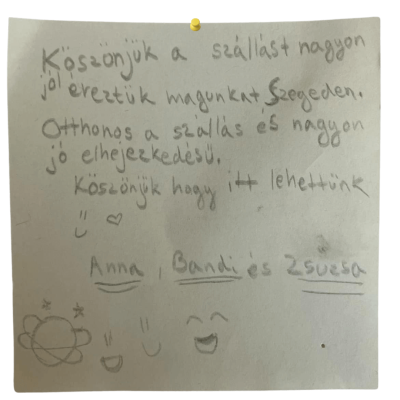 Köszönjük a szállást nagyon
jól éreztük magunkat Szegeden.
Otthonos a szállás és nagyon
jó elhejezkedésű.
Köszönjük hogy itt lehettünk
Anna, Bandi és Zsuzsa